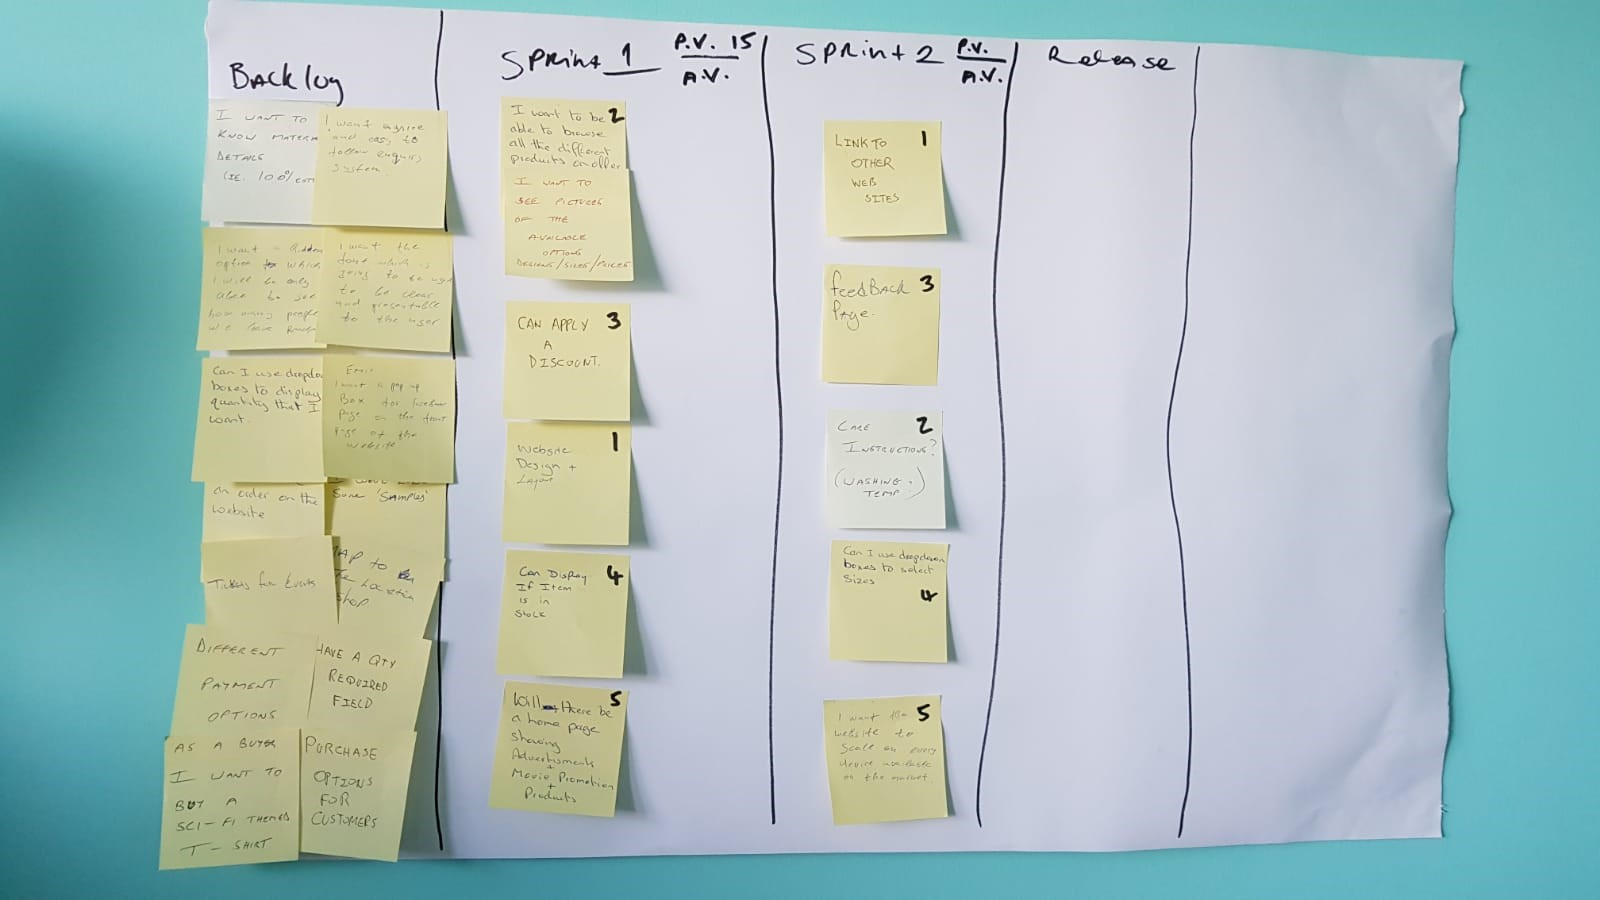 Backlog
I WANT TO
KNOW
DETAILS
(IE. 100%
I want
and easy to
follow enquiry
system.
I want a
option to which
I will be only
able to see
how many people
we have
I want the
font which is
going to be
to be clear
and presentable
to the user
Can I use
boxes to display
quantity that I
want.
I want a pop up
Box for
page on the front
page of the
website
an order on the
website
some 'SAMPLES'
Tickets for Events
to
Location
shop
DIFFERENT
PAYMENT
OPTIONS
HAVE A QTY
REQUIRED
FIELD
AS A BUYER
I WANT TO
BUY A
SCI-FI THEMED
T-SHIRT
PURCHASE
OPTIONS
FOR
CUSTOMERS
SPRINT 1
P.V. 15
A.V.
I want to be 2
able to browse
all the different
products on offer
I WANT TO
SEE PICTURES
OF THE
AVAILABLE
OPTIONS
DESIGNS/SIZES/PRICES
CAN APPLY 3
A
DISCOUNT.
1
Website
Design +
Layout
Can Display 4
If Item
is in
Stock
Will there be 5
a home page
showing
Advertisments
+
Movie Promotion
+
Products
SPRINT 2
P.V.
A.V.
LINK TO 1
OTHER
WEB
SITES
feedBack 3
Page.
CARE 2
INSTRUCTIONS?
(WASHING
TEMP.)
Can I use dropdown
boxes to select
sizes
4
I want the 5
website to
scale on every
device available
on the market
Release